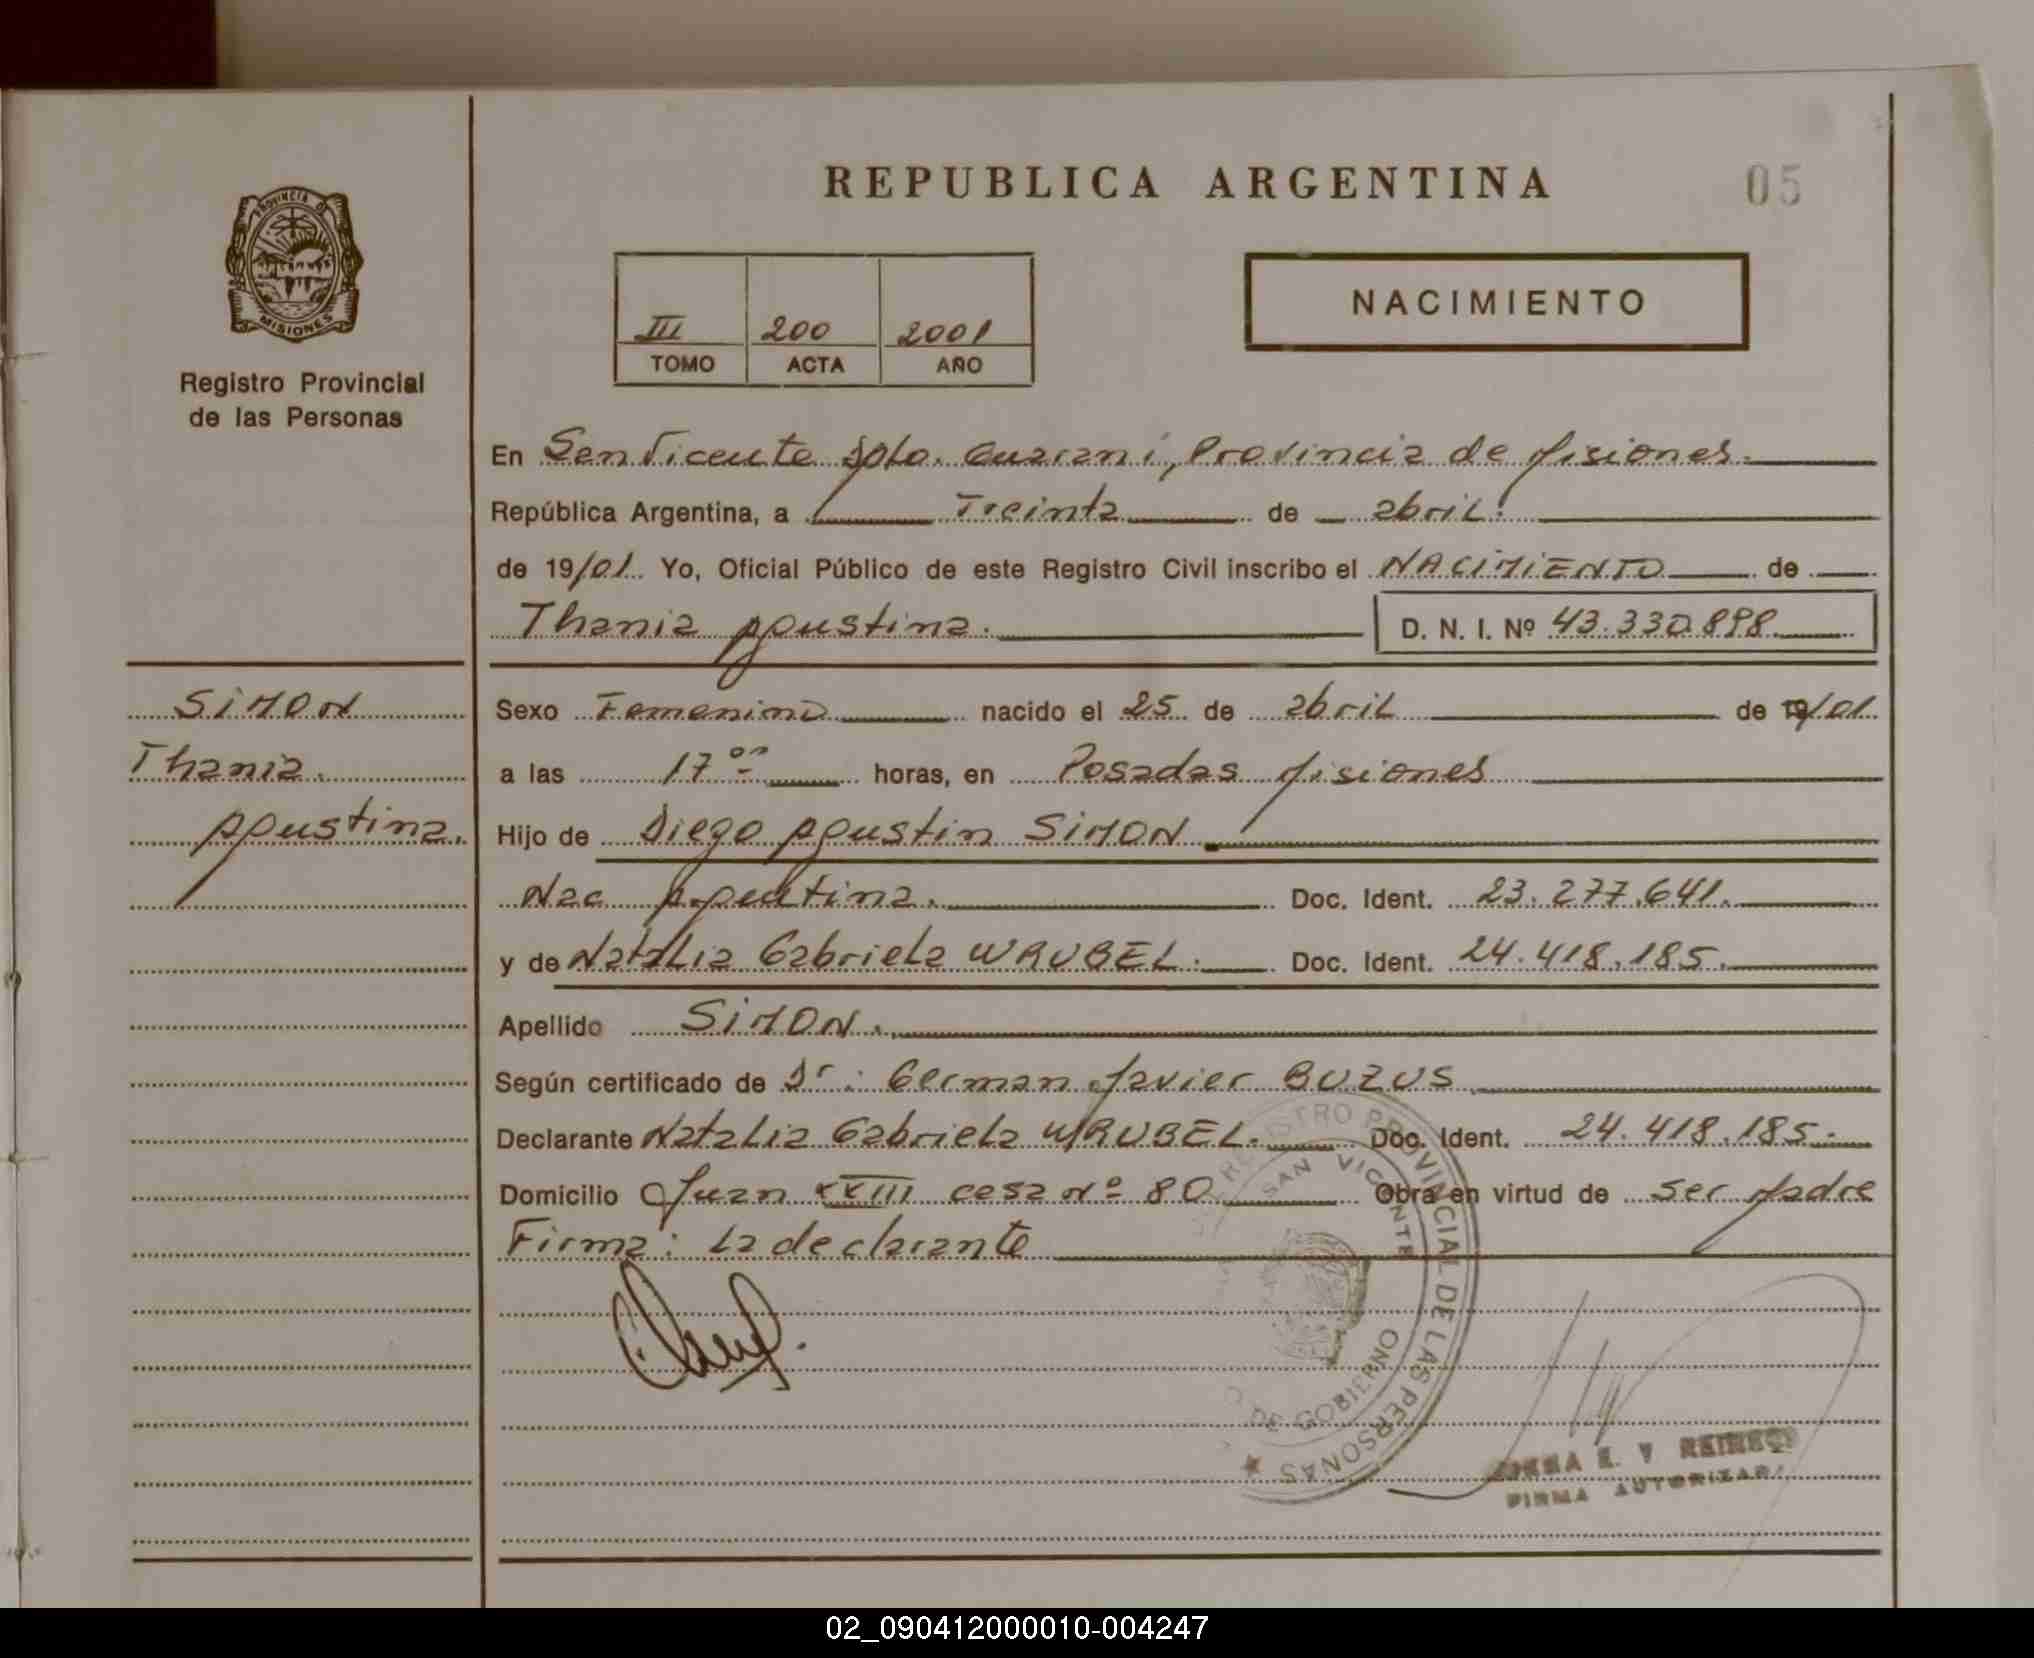 REPUBLICA ARGENTINA
05
PROVINCIA DE
MISIONES
Registro Provincial
de las Personas
III 200 2001
TOMO ACTA AÑO
NACIMIENTO
En San Vicente Dpto. Guarani, Provincia de Misiones.
República Argentina, a Treinta de abril.
de 19/01. Yo, Oficial Público de este Registro Civil inscribo el NACIMIENTO de
Thania Agustina. D. N. I. Nº 43.330.898
SIMON
Thania
Agustina.
Sexo Femenino nacido el 25 de abril de 19/01.
a las 17 ºº horas, en Posadas Misiones
Hijo de Diego Agustin SIMON
Nac Argentina. Doc. Ident. 23.277.641.
y de Natalia Gabriela WRUBEL. Doc. Ident. 24.418.185.
Apellido SIMON.
Según certificado de Dr. German Javier BUZUS
Declarante Natalia Gabriela WRUBEL. Doc. Ident. 24.418.185.
Domicilio Juan XXIII casa Nº 80 Obra en virtud de ser Madre
Firma: La declarante
REGISTRO PROVINCIAL DE LAS PERSONAS
SAN VICENTE
DE GOBIERNO
E. V
FIRMA AUTORIZADA
02_090412000010-004247